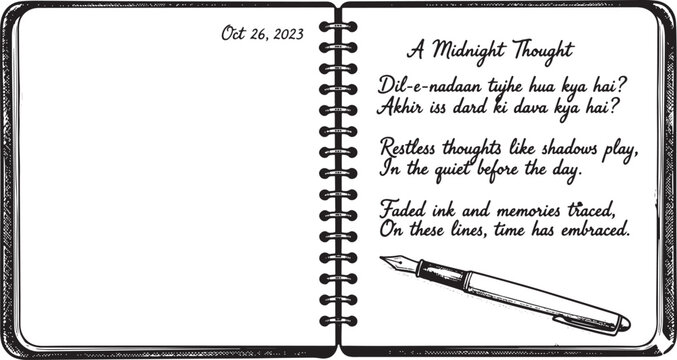 Oct 26, 2023
A Midnight Thought
Dil-e-nadaan tujhe hua kya hai?
Akhir iss dard ki dava kya hai?
Restless thoughts like shadows play,
In the quiet before the day.
Faded ink and memories traced,
On these lines, time has embraced.